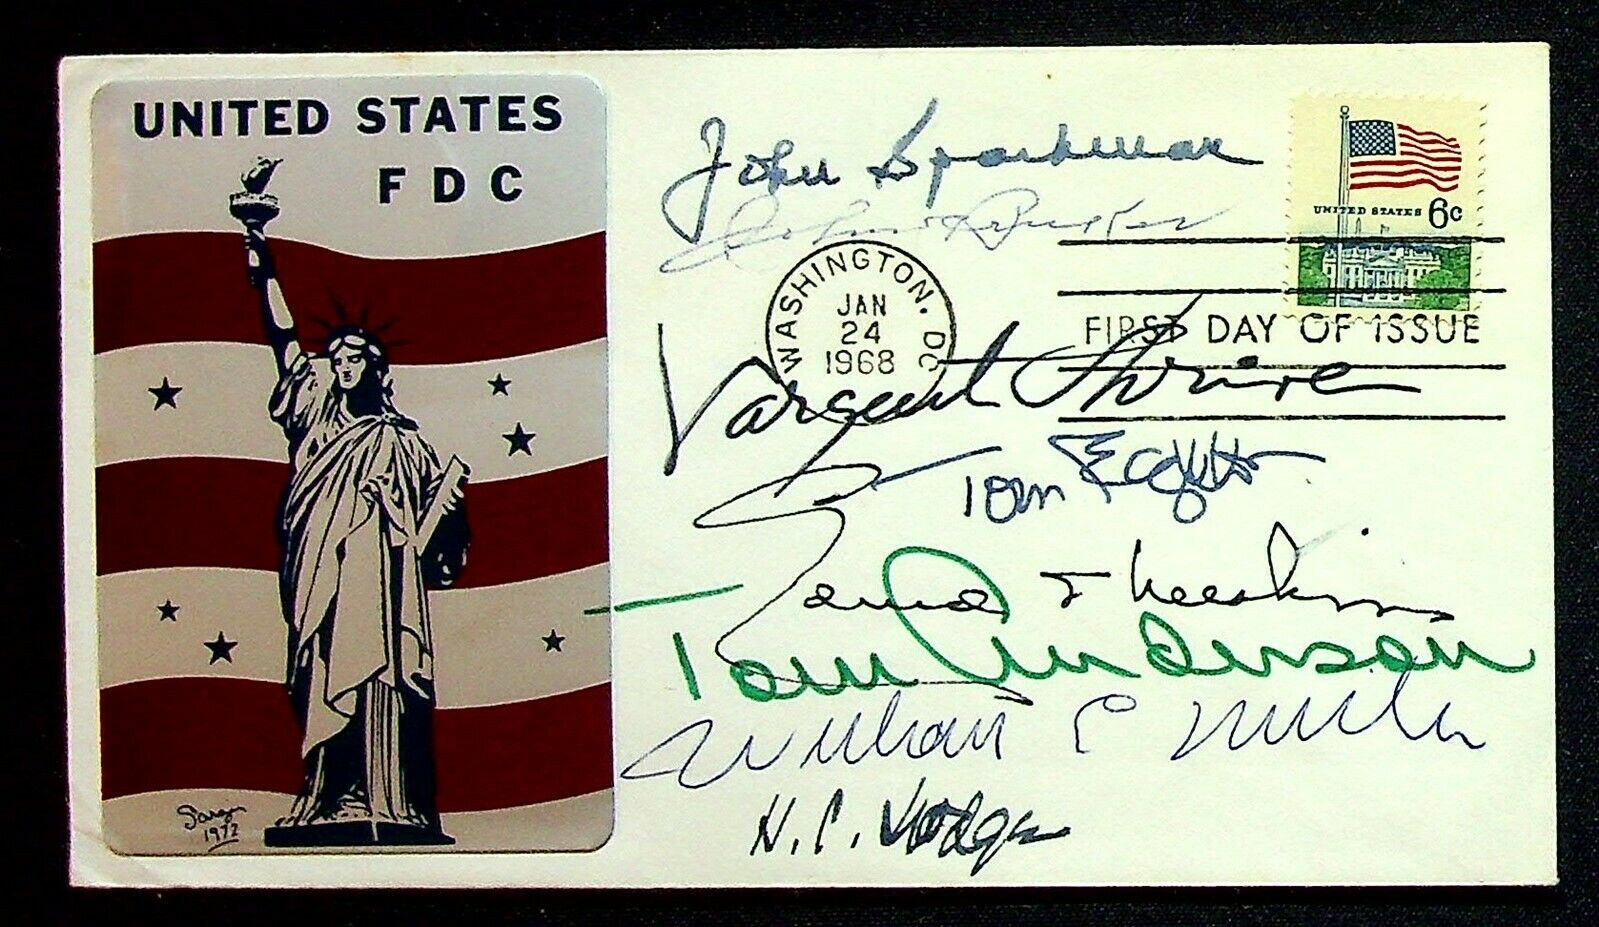 UNITED STATES
FDC
John Sparkman
UNITED STATES 6c
WASHINGTON, DC
JAN
24
1968
FIRST DAY OF ISSUE
Sargent Shriver
Tom Eagleton
Tom Anderson
William E Miller
1972